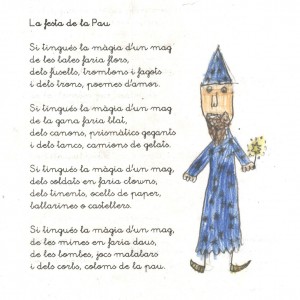 La festa de la Pau
Si tingués la màgia d'un mag
de les bales faria flors,
dels fusells, trombons i fagots
i dels trons, poemes d'amor.
Si tingués la màgia d'un mag
de la gana faria blat,
dels canons, prismàtics gegants
i dels tancs, camions de gelats.
Si tingués la màgia d'un mag,
dels soldats en faria clowns,
dels tinents, ocells de paper,
ballarines o castellers.
Si tingués la màgia d'un mag,
de les mines en faria daus,
de les bombes, jocs malabars
i dels corbs, coloms de la pau.